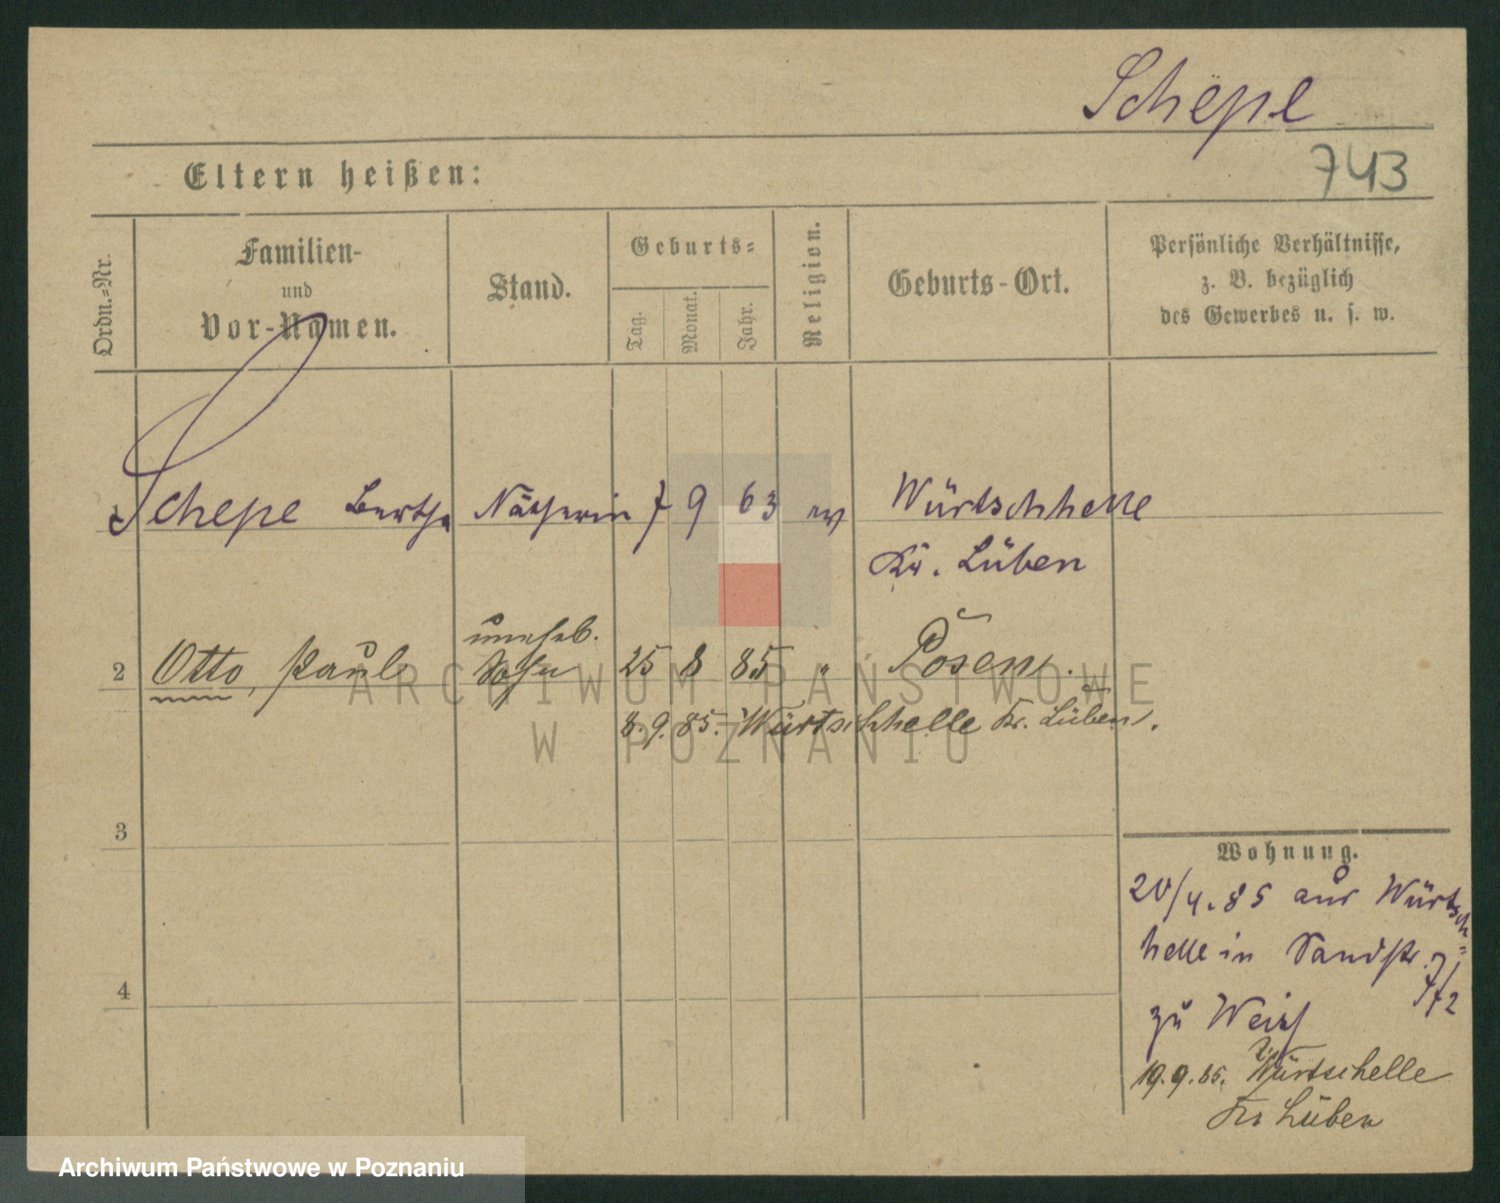 Schepe
743
Eltern heißen:
Ordn.-Nr.
Familien-
und
Vor-Namen.
Stand.
Geburts-
Tag.
Monat.
Jahr.
Religion.
Geburts-Ort.
Persönliche Verhältnisse,
z. B. bezüglich
des Gewerbes u. s. w.
1 Schepe Bertha Nätherin 7 9 63 ev Würtschhelle
Kr. Lüben
unehel.
2 Otto, Paul Sohn 25 8 85 " Posen.
8.9.85. Würtschhelle Kr. Lüben.
3
4
Wohnung.
20/4.85 aus Würtsch-
helle in Sandstr. 7/
zu
19.9.85. Würtschelle
Kr Lüben
ARCHIWUM PAŃSTWOWE
W POZNANIU
Archiwum Państwowe w Poznaniu